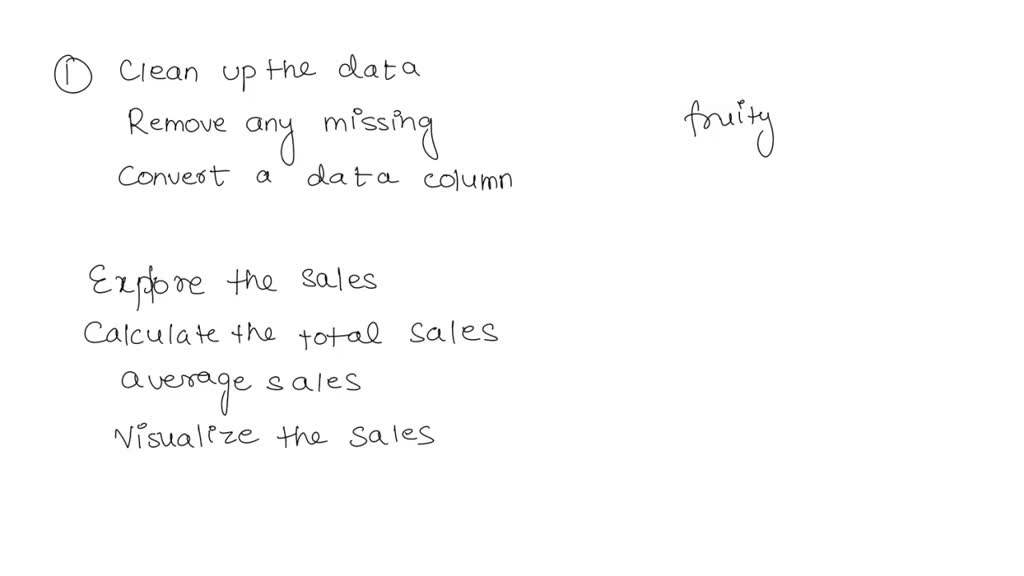 ① Clean up the data
Remove any missing
fruity
Convert a data column
Explore the sales
Calculate the total sales
average sales
Visualize the sales